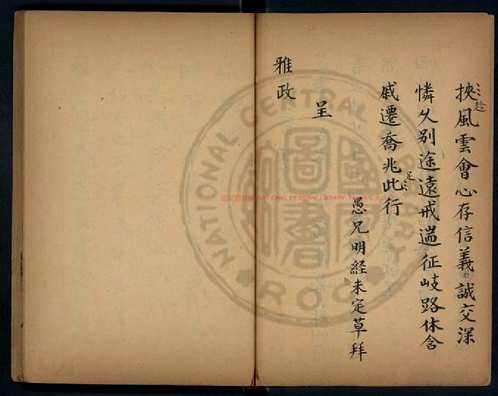 挾風雲會心存信義誠交深
憐久別途遠戒遄征岐路休含
戚遷喬兆此行
愚兄明經未定草拜
呈
雅政
NATIONAL CENTRAL LIBRARY
R.O.C.
國家圖書館